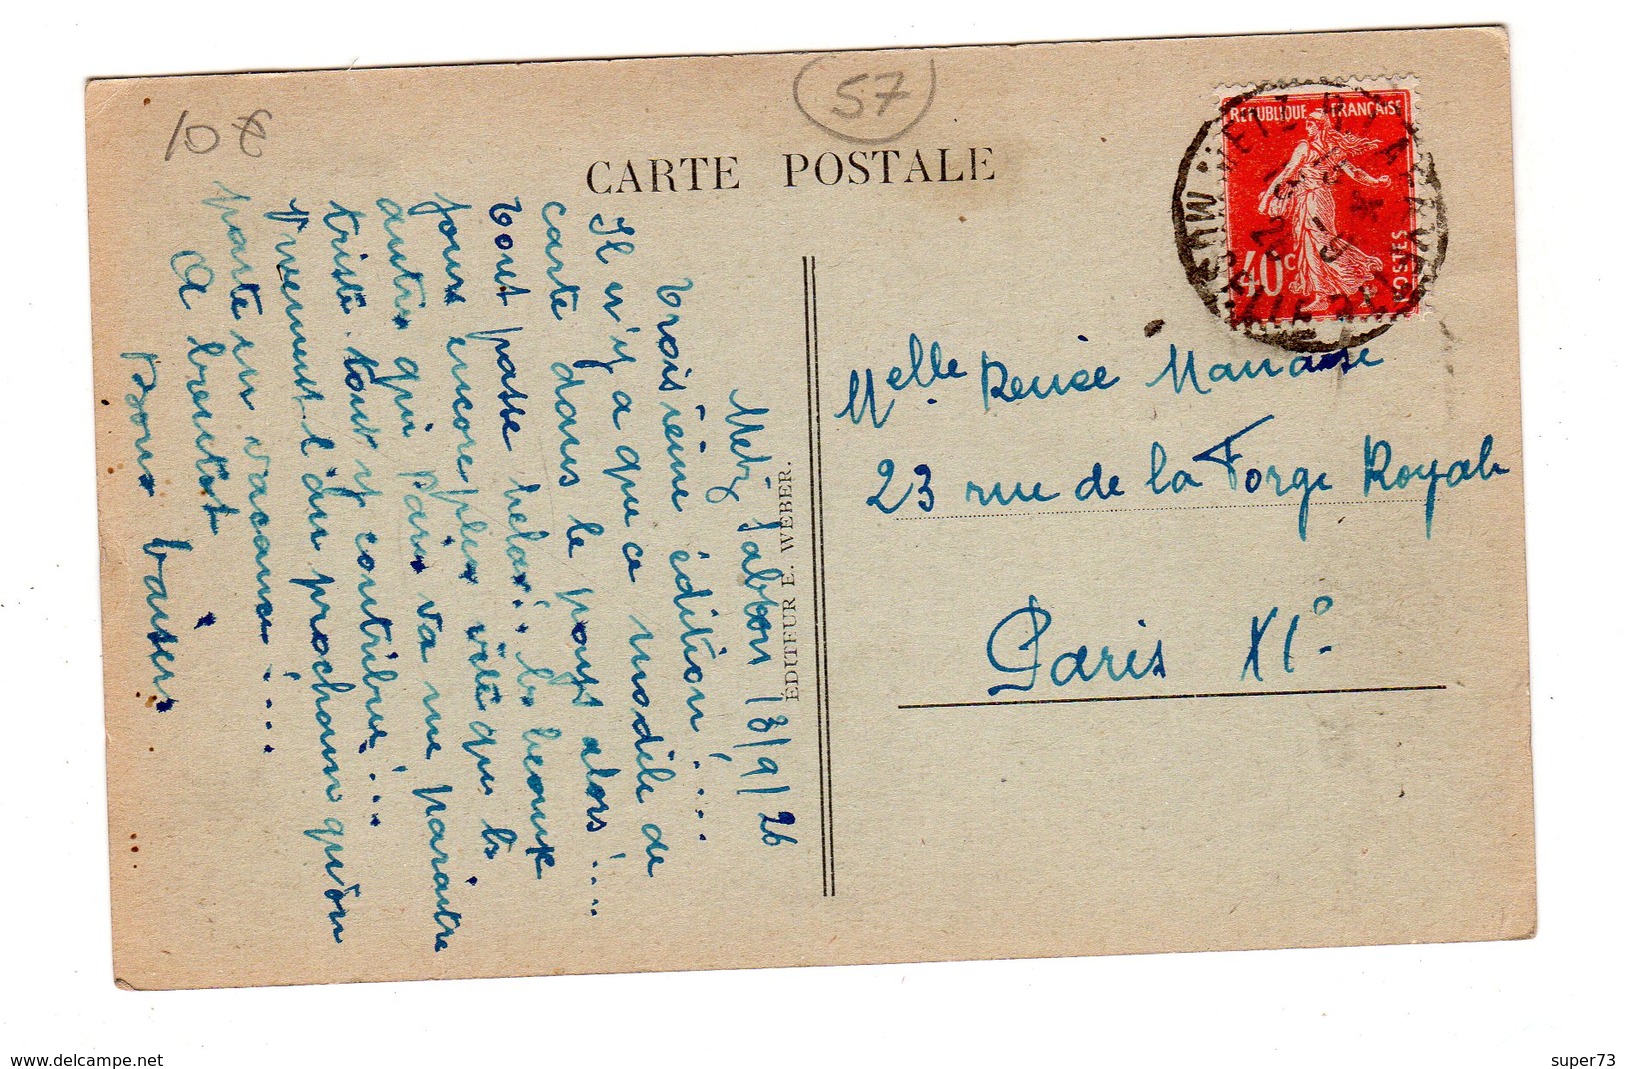 10 €
57
CARTE POSTALE
REPUBLIQUE FRANÇAISE
40c
POSTES
Metz Sablon 13/9/26
Troisième édition! ...
Il n'y a que ce modèle de
carte dans le pays alors! ...
tout passe helas! .. le beaux
jours encore plus vite que les
autres qui Paris va me paraitre
triste. tout y contribue! ...
Vivement l'an prochain qu'on
parte en vacances! ...
A bientot
Bons baisers
ÉDITEUR E. WEBER.
Melle Renée Manasse
23 rue de la Forge Royale
Paris XIe
www.delcampe.net
super73